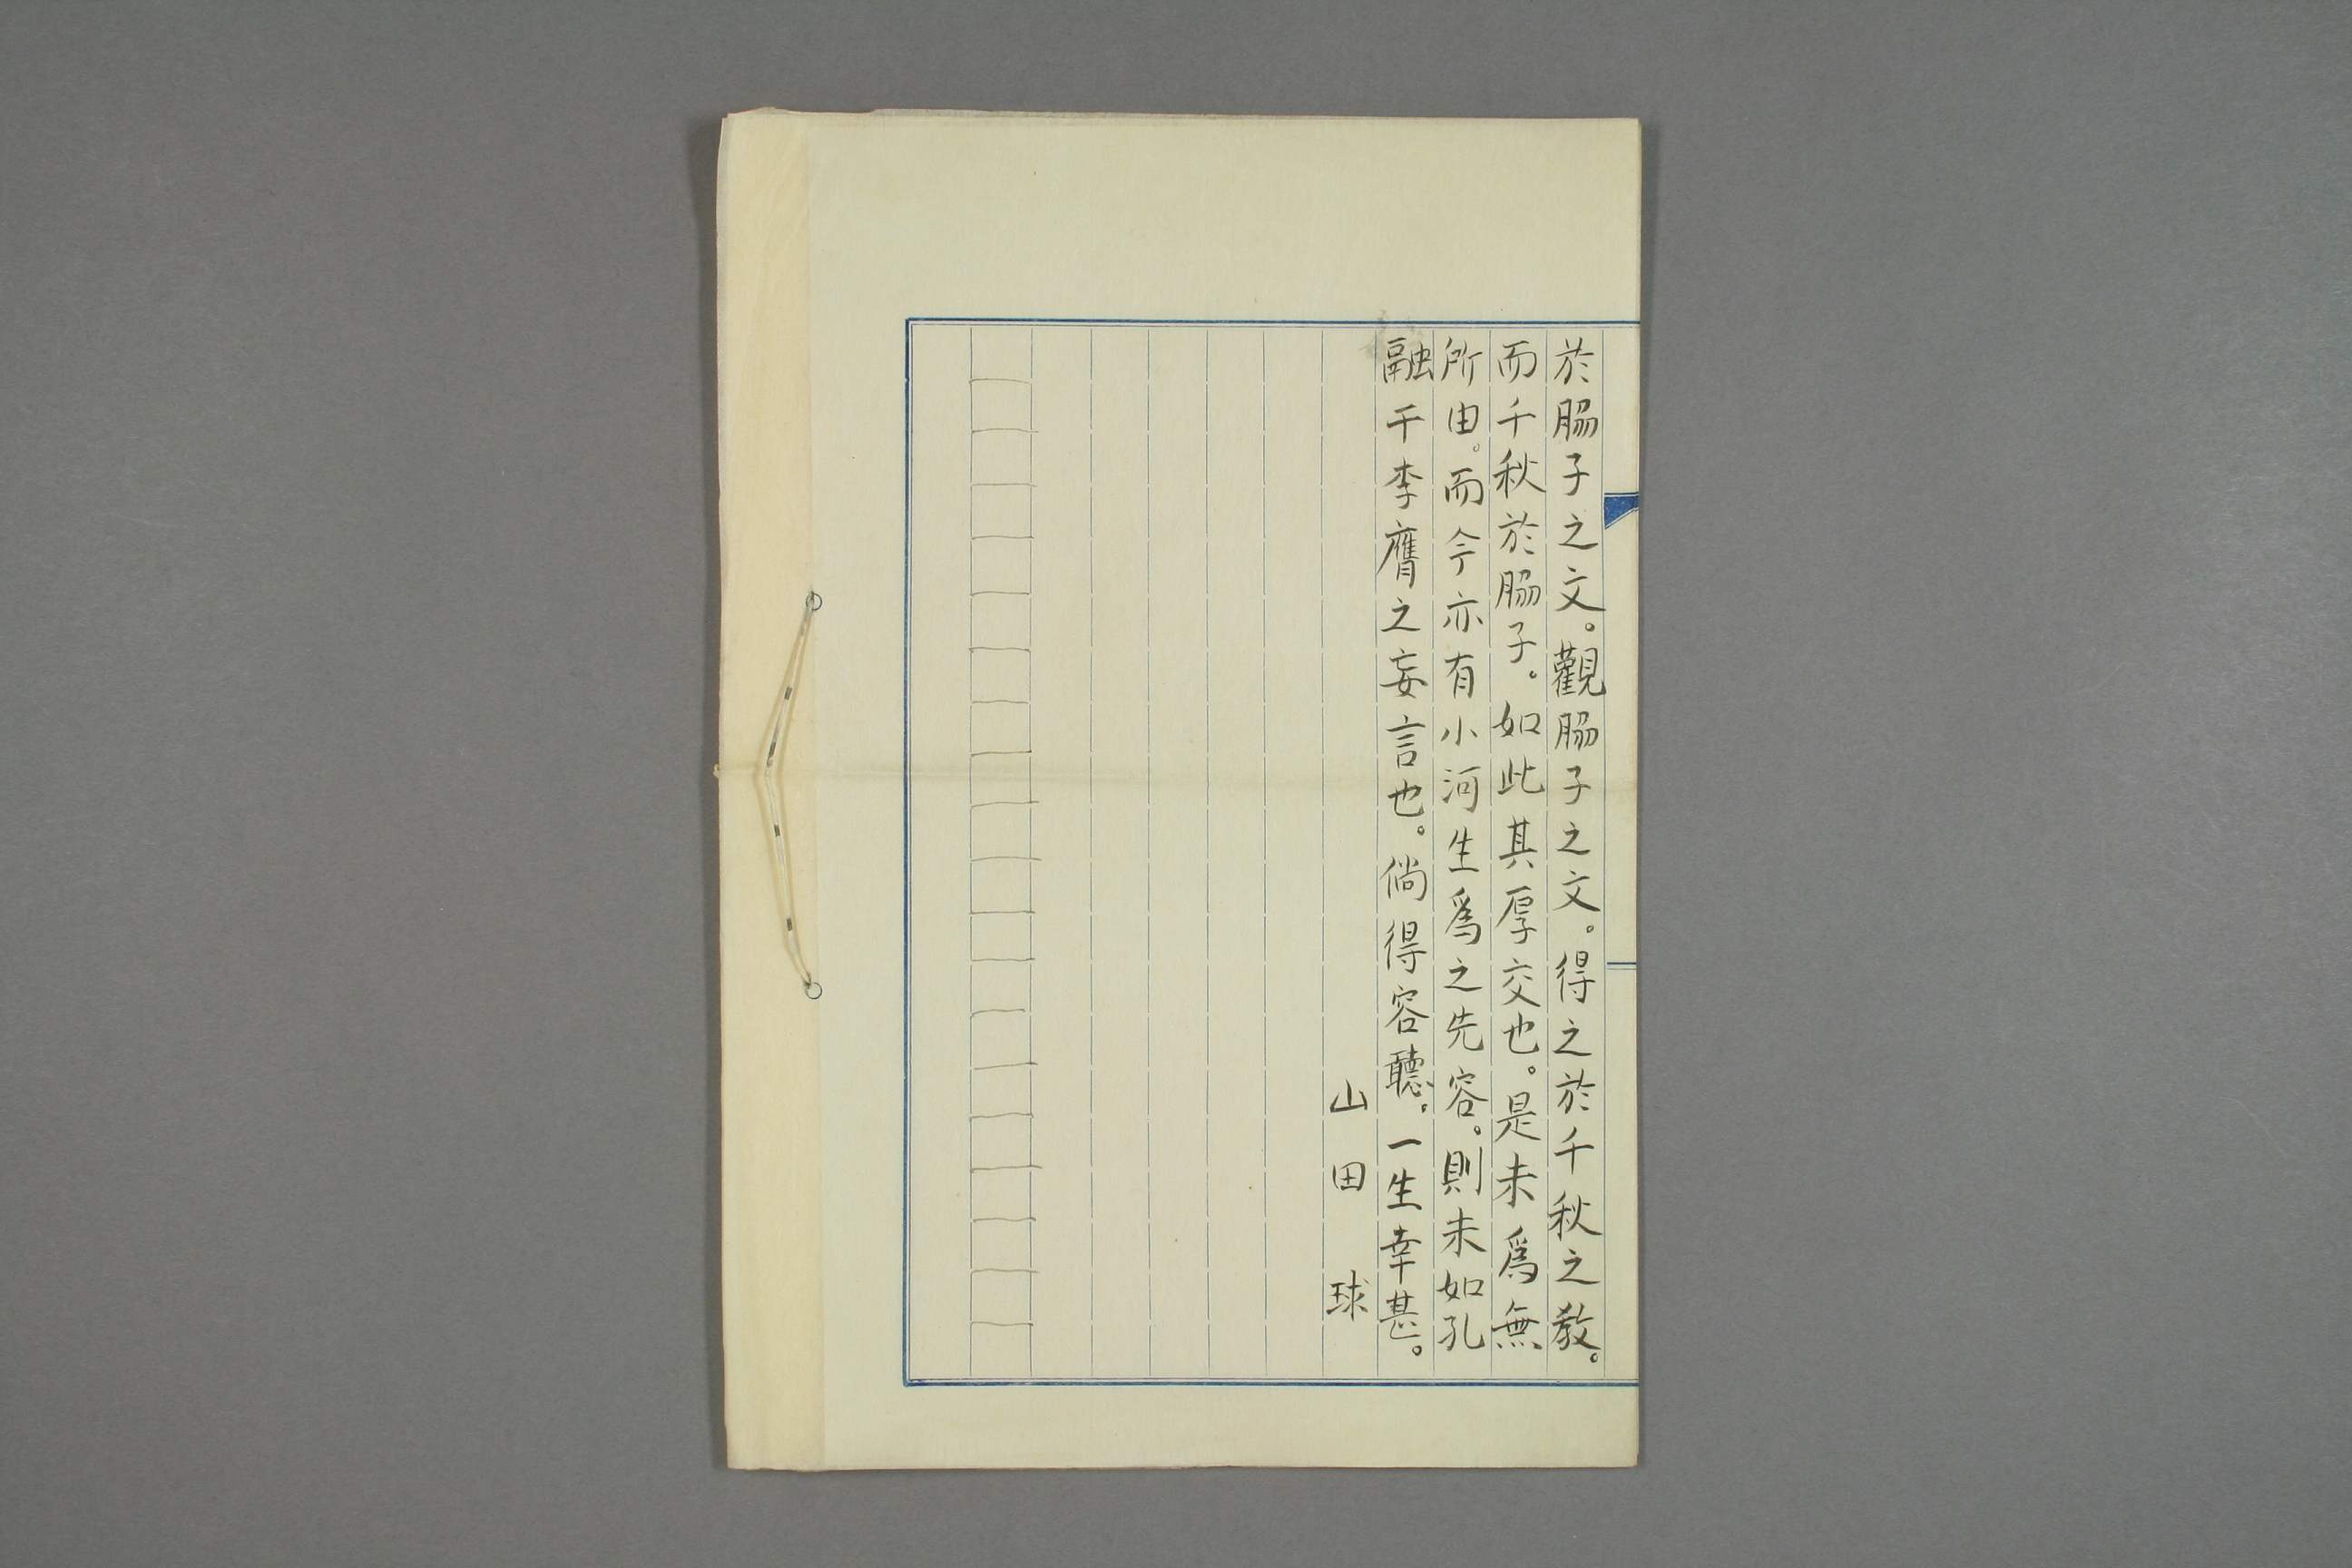 於脇子之文。觀脇子之文。得之於千秋之教。
而千秋於脇子。如此其厚交也。是未爲無
所由。而今亦有小河生爲之先容。則未如孔
融干李膺之妄言也。倘得容聽。一生幸甚。
山田球